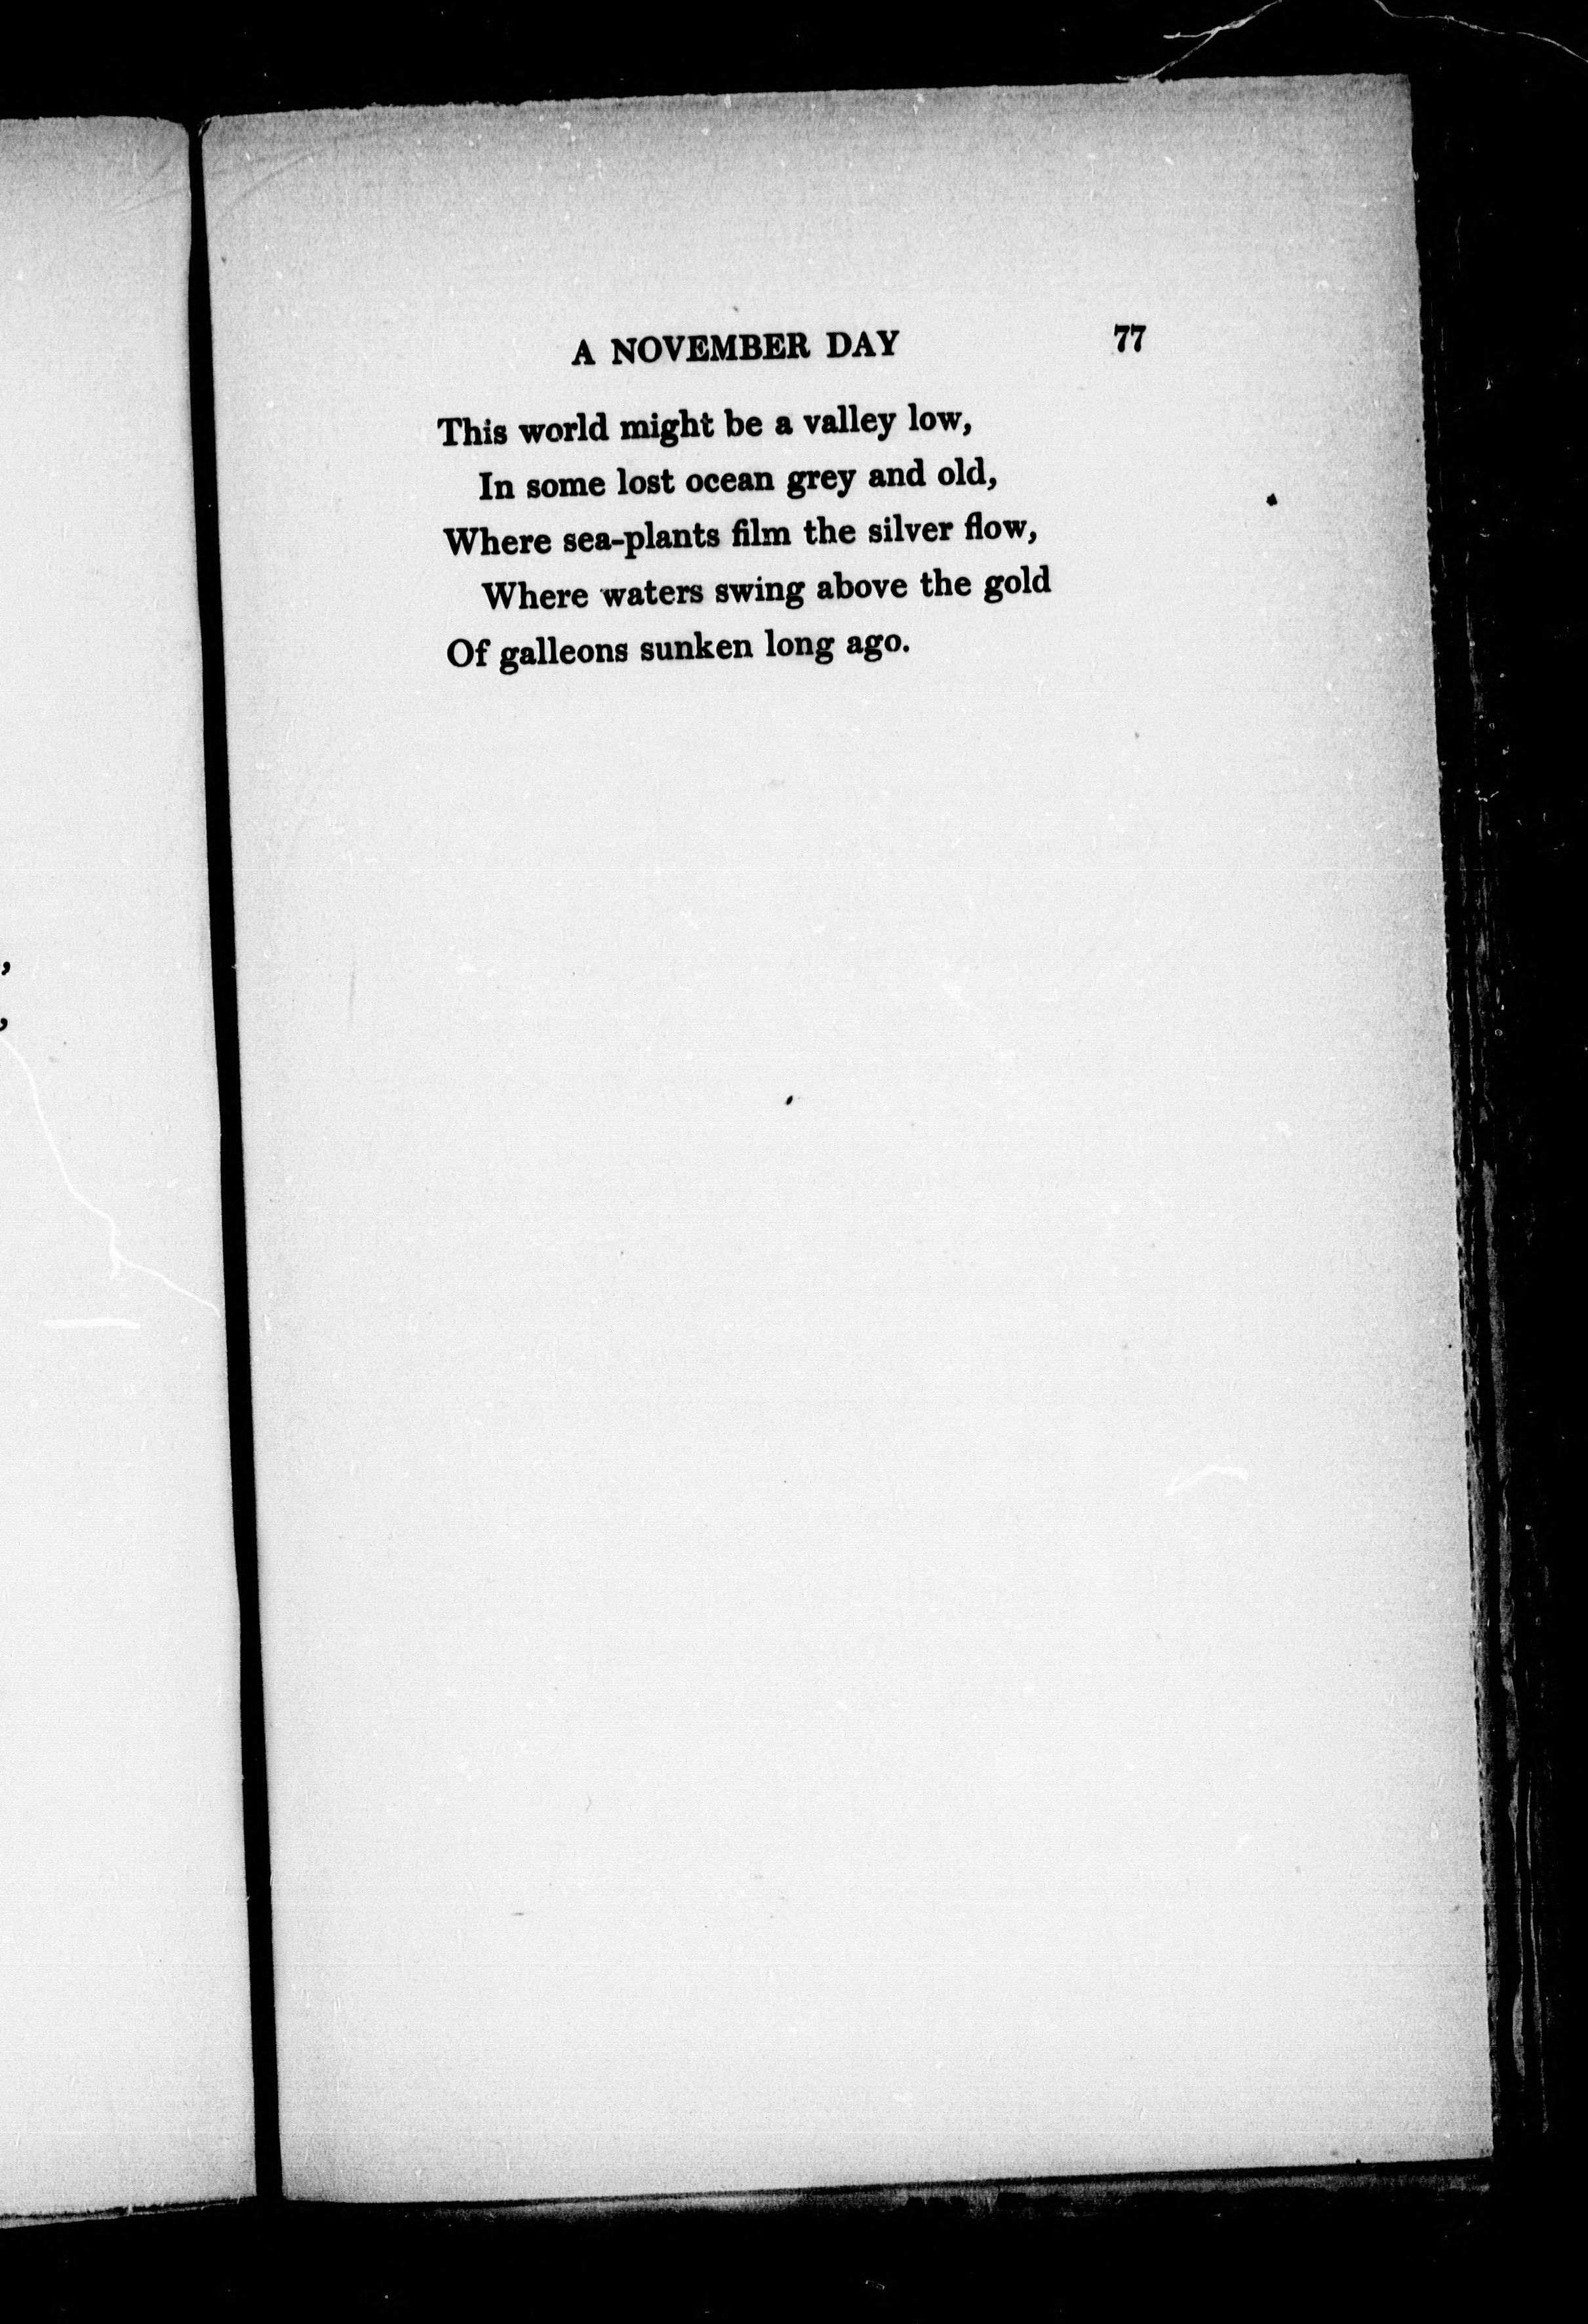 A NOVEMBER DAY 77
This world might be a valley low,
In some lost ocean grey and old,
Where sea-plants film the silver flow,
Where waters swing above the gold
Of galleons sunken long ago.
,
,